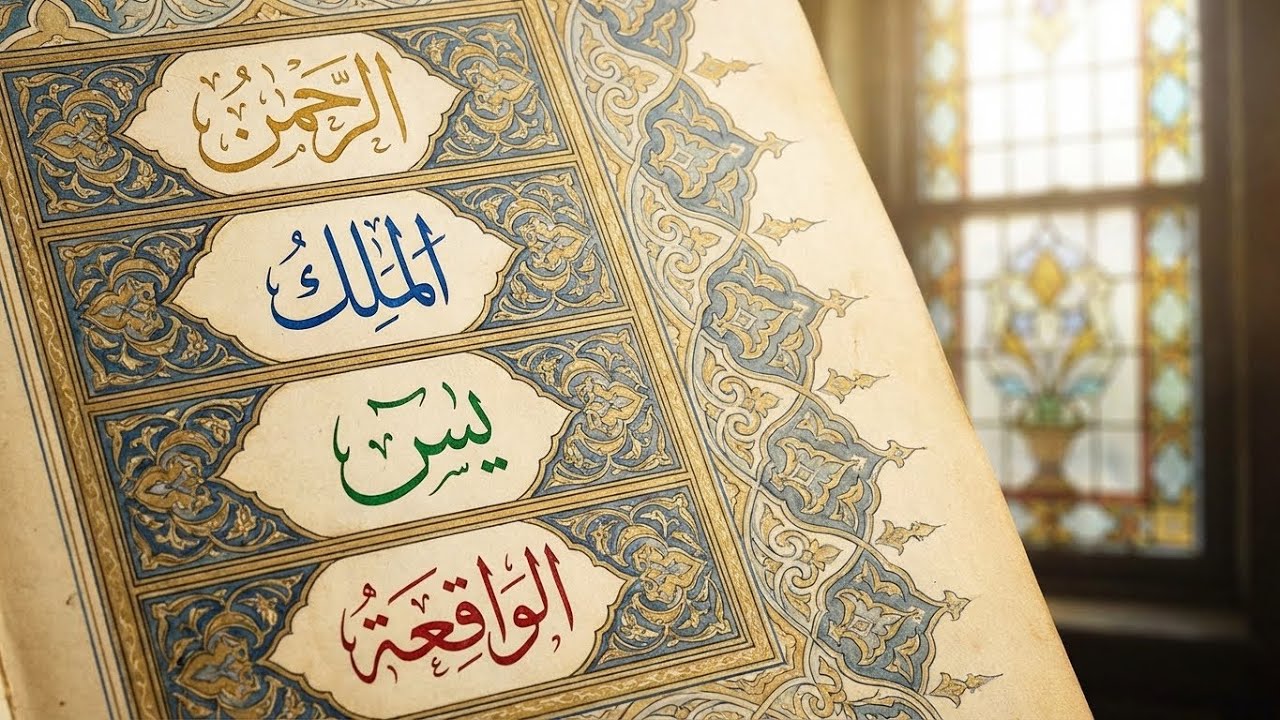 الرَّحْمٰنُ
المَلِكُ
يٓسٓ
الوَاقِعَةُ